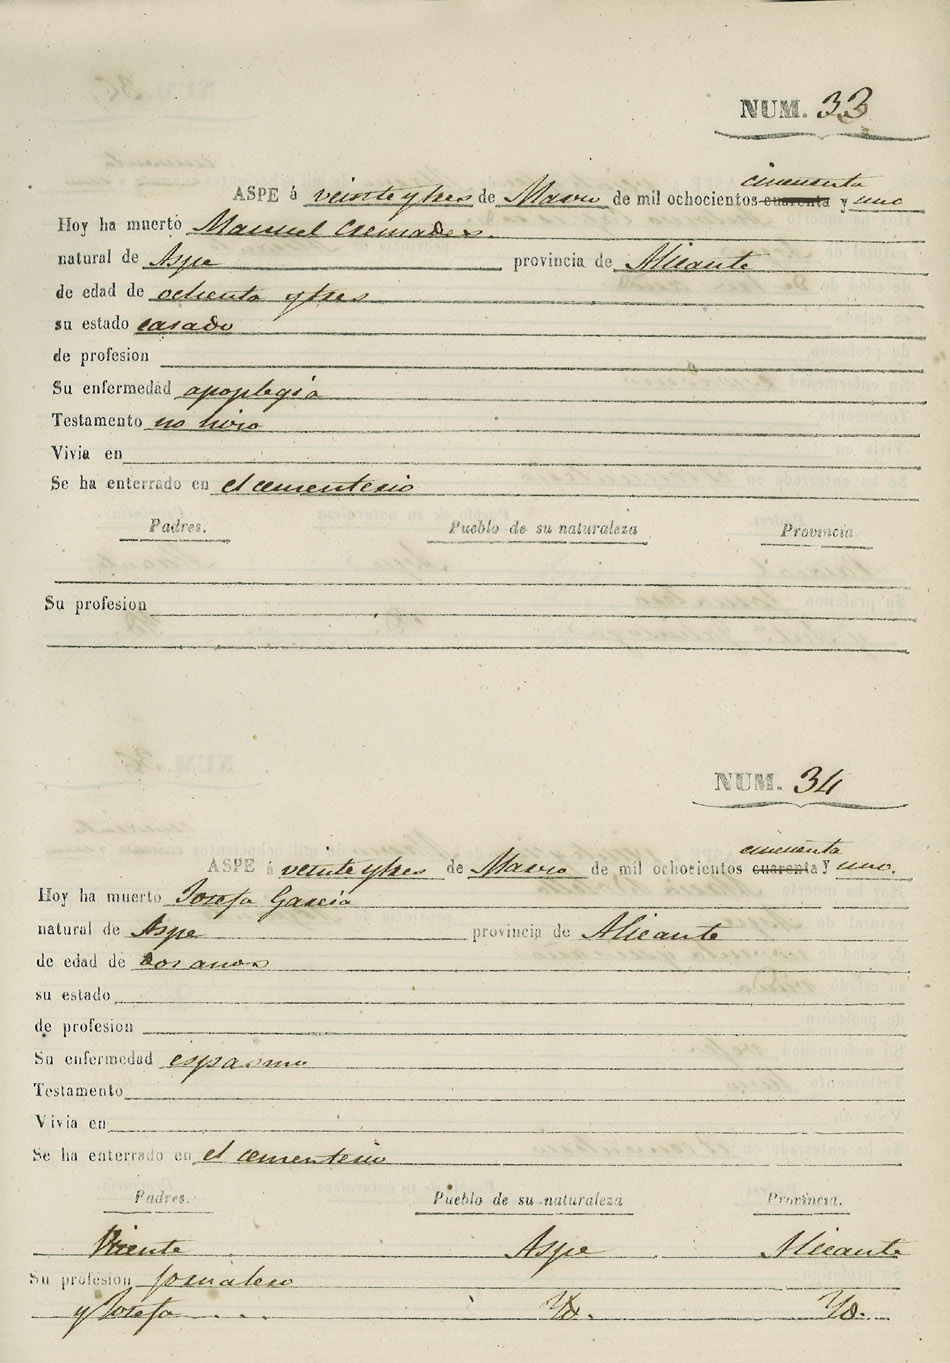 NUM. 33
cincuenta
ASPE á veinte y tres de Marzo de mil ochocientos cuarenta y uno
Hoy ha muerto Manuel Cremades.
natural de Aspe provincia de Alicante
de edad de ochenta y tres
su estado casado
de profesion
Su enfermedad apoplegia
Testamento no hizo
Vivia en
Se ha enterrado en el cementerio
Padres. Pueblo de su naturaleza Provincia
Su profesion
NUM. 34
cincuenta
ASPE á veinte y tres de Marzo de mil ochocientos cuarenta y uno.
Hoy ha muerto Josefa Garcia
natural de Aspe provincia de Alicante
de edad de dos años
su estado
de profesion
Su enfermedad espasmo
Testamento
Vivia en
Se ha enterrado en el cementerio
Padres. Pueblo de su naturaleza Provincia.
Vicente Aspe Alicante
Su profesion jornalero
y Josefa Yd. Yd.